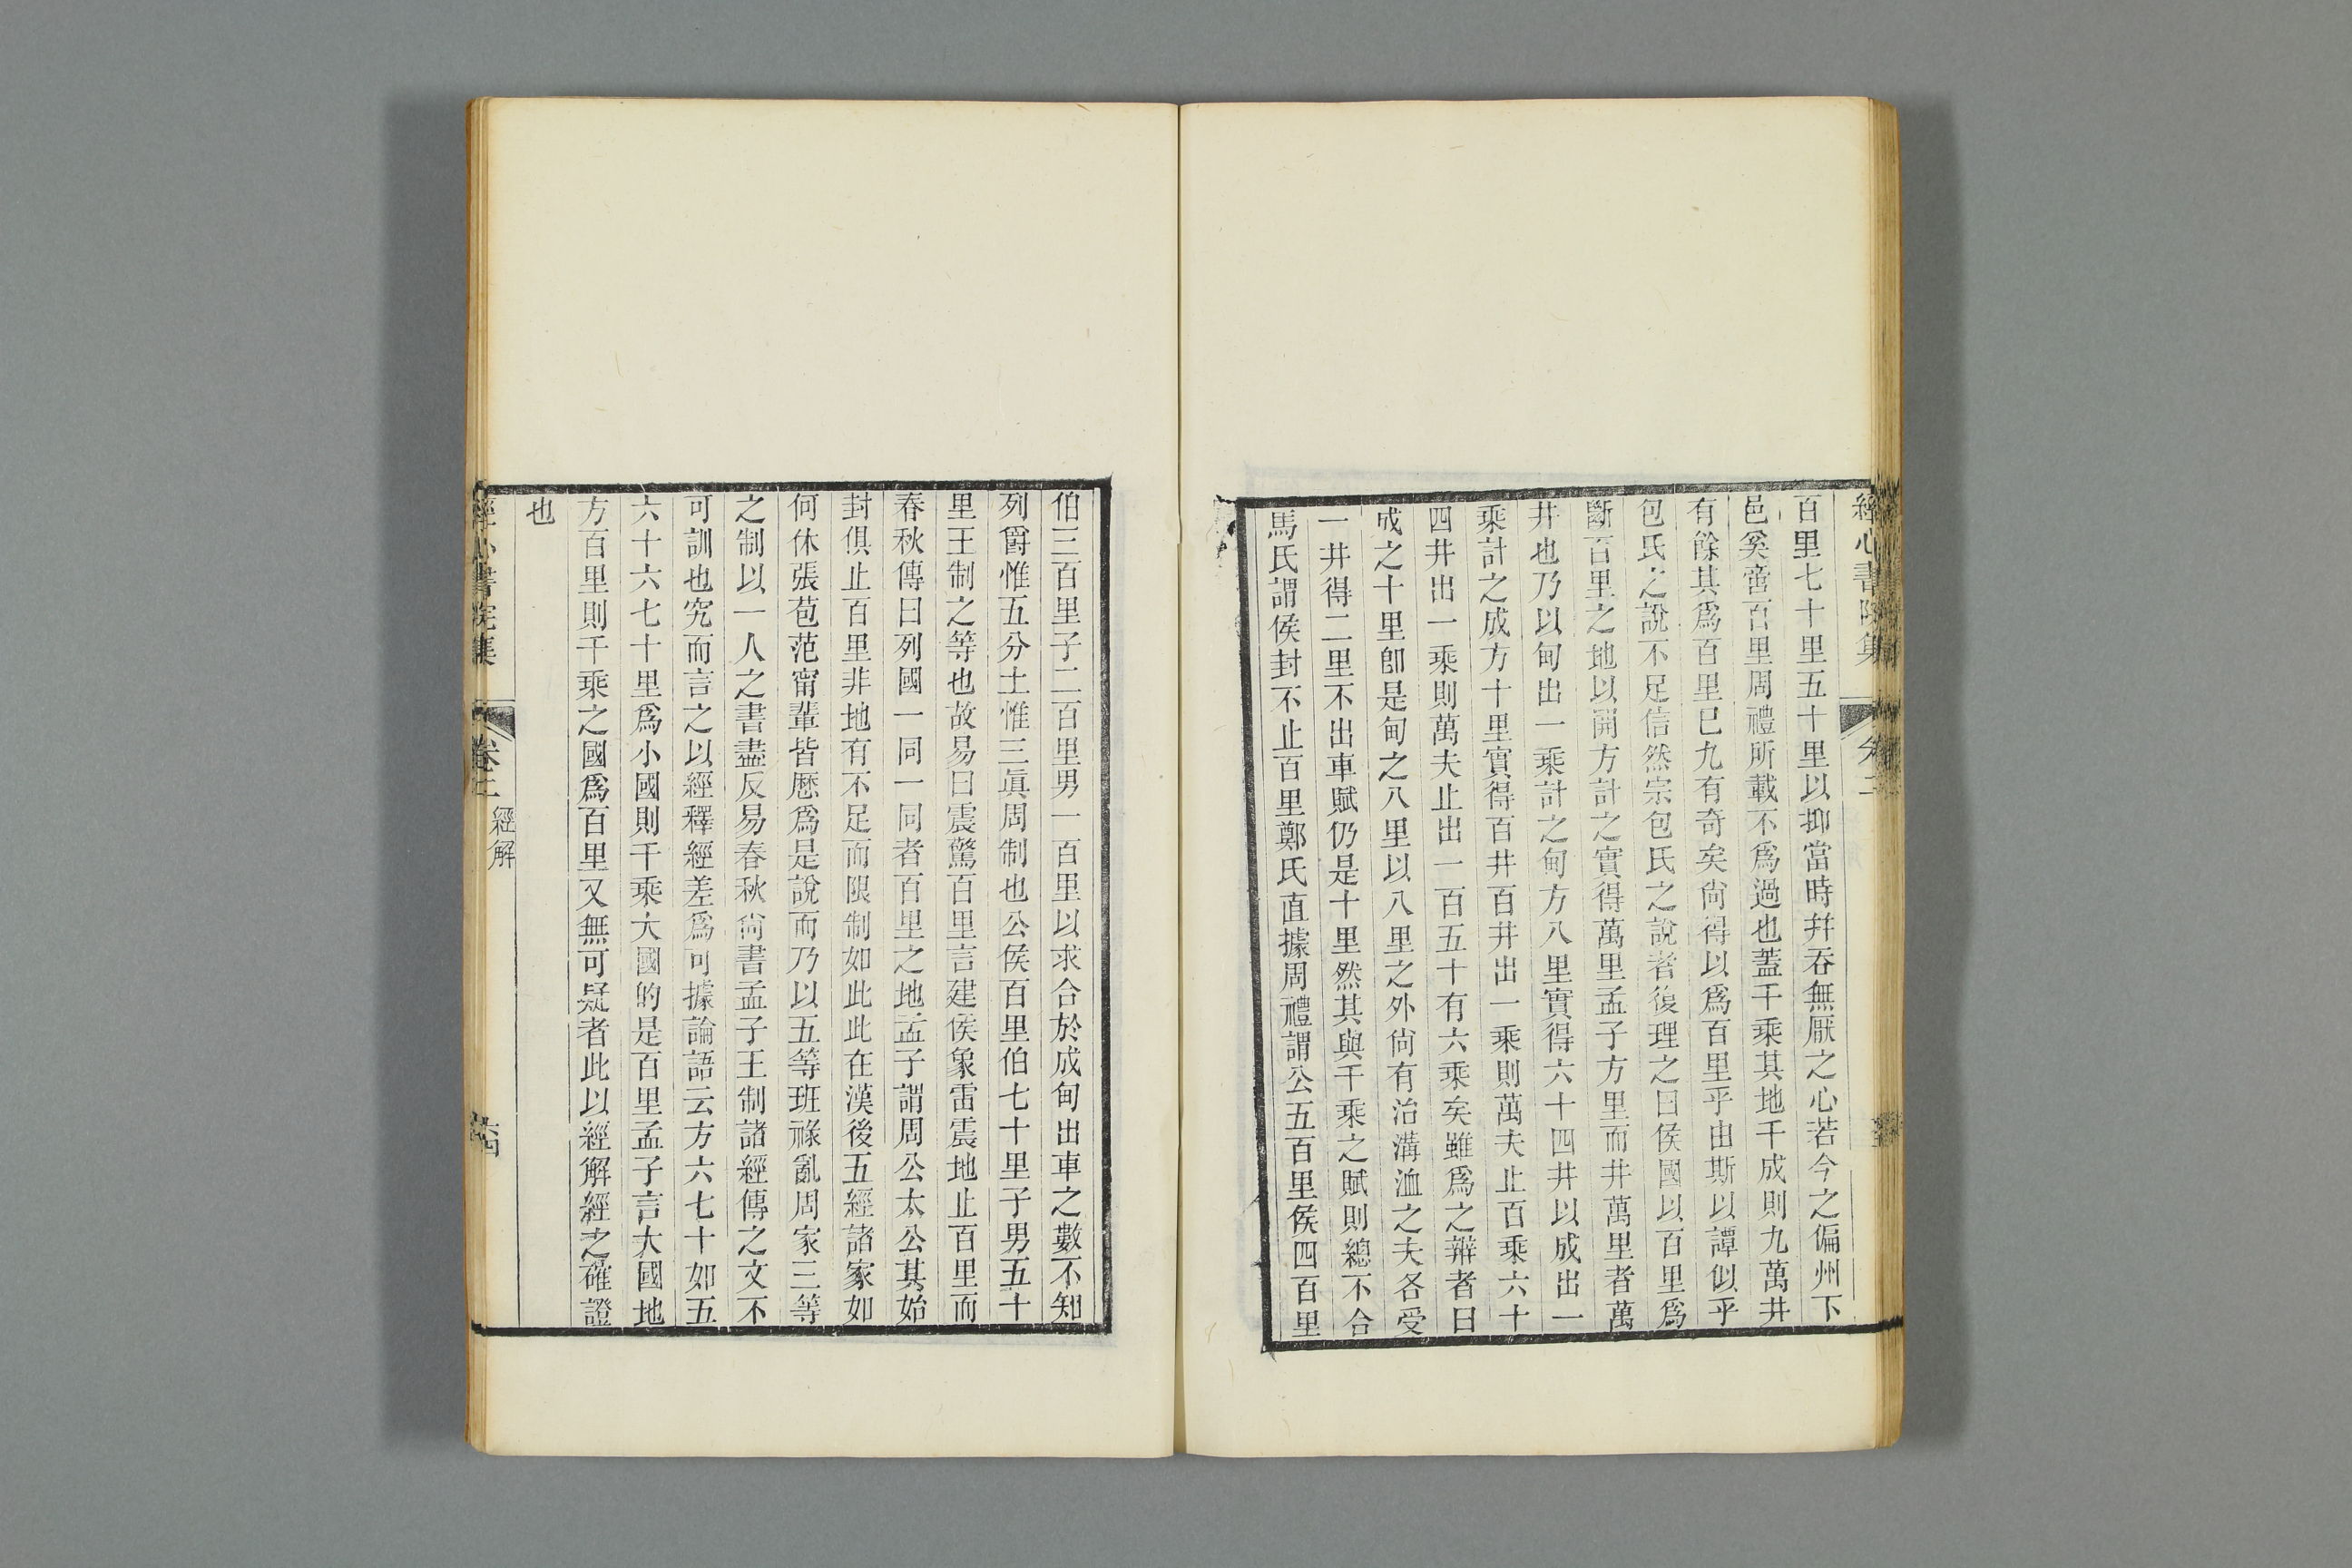 經心書院集 卷二
百里七十里五十里以抑當時幷吞無厭之心若今之偏州下
邑奚啻百里周禮所載不爲過也蓋千乘其地千成則九萬井
有餘其爲百里已九有奇矣尙得以爲百里乎由斯以譚似乎
包氏之說不足信然宗包氏之說者復理之曰侯國以百里爲
斷百里之地以開方計之實得萬里孟子方里而井萬里者萬
井也乃以甸出一乘計之甸方八里實得六十四井以成出一
乘計之成方十里實得百井百井出一乘則萬夫止百乘六十
四井出一乘則萬夫止出一百五十有六乘矣雖爲之辯者曰
成之十里卽是甸之八里以八里之外尙有治溝洫之夫各受
一井得二里不出車賦仍是十里然其與千乘之賦則總不合
馬氏謂侯封不止百里鄭氏直據周禮謂公五百里侯四百里
伯三百里子二百里男一百里以求合於成甸出車之數不知
列爵惟五分土惟三眞周制也公侯百里伯七十里子男五十
里王制之等也故易曰震驚百里言建侯象雷震地止百里而
春秋傳曰列國一同一同者百里之地孟子謂周公太公其始
封俱止百里非地有不足而限制如此此在漢後五經諸家如
何休張苞范甯輩皆歷爲是說而乃以五等班祿亂周家三等
之制以一人之書盡反易春秋尙書孟子王制諸經傳之文不
可訓也究而言之以經釋經差爲可據論語云方六七十如五
六十六七十里爲小國則千乘大國的是百里孟子言大國地
方百里則千乘之國爲百里又無可疑者此以經解經之確證
也
經心書院集 卷二 經解